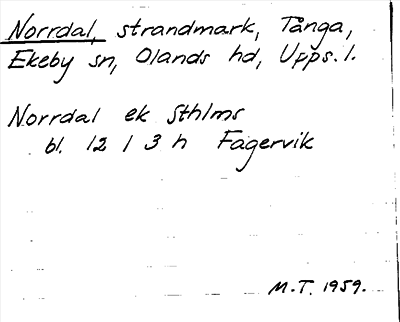 Norrdal, strandmark, Tånga,
Ekeby sn, Olands hd, Upps. l.
Norrdal ek Sthlms
bl. 12 1 3 h Fagervik
M.T. 1959.